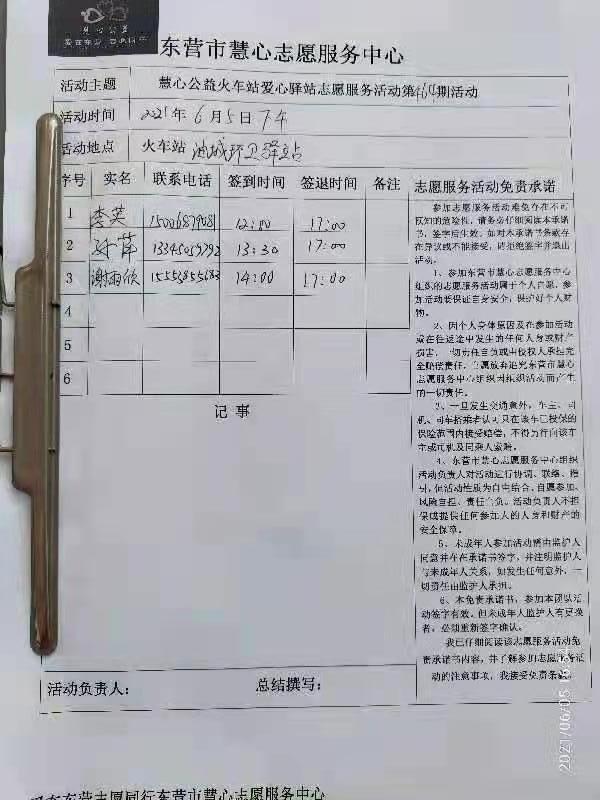 慧心公益
东营市慧心志愿服务中心
活动主题 慧心公益火车站爱心驿站志愿服务活动第464期活动
活动时间 2021年6月5日下午
活动地点 火车站 油城环卫驿站
序号 实名 联系电话 签到时间 签退时间 备注
1 李英 12:00 17:00
2 孙萍 13345059792 13:30 17:00
3 谢雨欣 15553855683 14:00 17:00
4
5
6
记事
志愿服务活动免责承诺
参加志愿服务活动难免存在不可
预知的危险性，请务必仔细阅读本承诺
书，签字后生效，如对本承诺书条款存
在异议或不能接受，请拒绝签字并退出
活动。
1、参加东营市慧心志愿服务中心
组织的志愿服务活动属于个人自愿，参
加活动要保证自身安全，保护好个人财
物。
2、因个人身体原因及在参加活动
或在往返途中发生的任何人身或财产
损害，一切责任自负或由侵权人承担完
全赔偿责任，自愿放弃追究东营市慧心
志愿服务中心组织因组织活动而产生
的一切责任。
3、一旦发生交通意外，车主、司
机、同车搭乘者认可只在该车已投保的
保险范围内接受赔偿，不得另行向该车
车主或司机及同乘人索赔。
4、东营市慧心志愿服务中心组织
活动负责人对活动进行协调、联络、指
引，但活动性质为自由结合、自愿参加、
风险自担、责任自负。活动负责人不担
保或提供任何参加人的人身和财产的
安全保障。
5、未成年人参加活动需由监护人
同意并在在承诺书签字，并注明监护人
与未成年人关系，如发生任何意外，一
切责任由监护人承担。
6、本免责承诺书，参加本团队活
动签字有效，但未成年人监护人有更换
者，必须重新签字确认。
我已仔细阅读该志愿服务活动免
责承诺书内容，并了解参加志愿服务活
动的注意事项，我接受免责条款
活动负责人： 总结撰写：
2021/06/05
东营志愿同行东营市慧心志愿服务中心